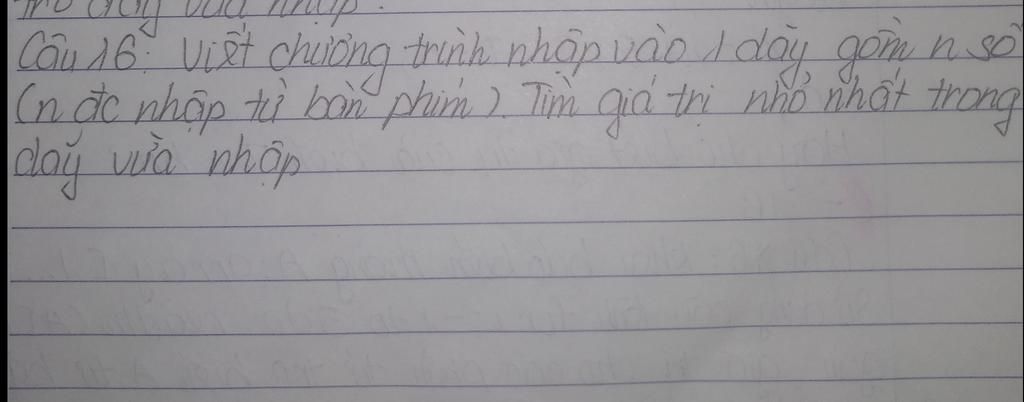 trò dãy vừa nhập.
Câu 16: Viết chương trình nhập vào 1 dãy gồm n số
(n đc nhập từ bàn phím). Tìm giá trị nhỏ nhất trong
dãy vừa nhập